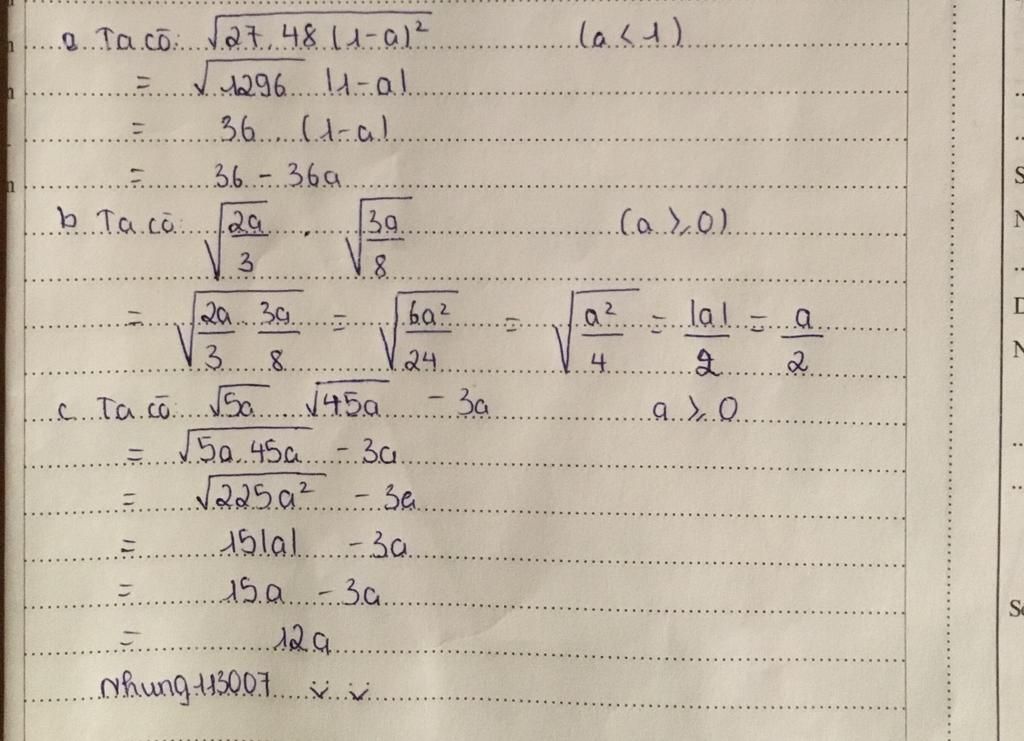 a Ta có: √27.48(1-a)² (a < 1)
= √1296 |1-a|
= 36 . (1-a)
= 36 - 36a
b Ta có: √(2a/3) . √(3a/8) (a ≥ 0)
= √(2a/3 . 3a/8) = √(6a²/24) = √(a²/4) = |a|/2 = a/2
c Ta có √5a . √45a - 3a a ≥ 0
= √5a.45a - 3a
= √225a² - 3a
= 15|a| - 3a
= 15a - 3a
= 12a
Nhung113007